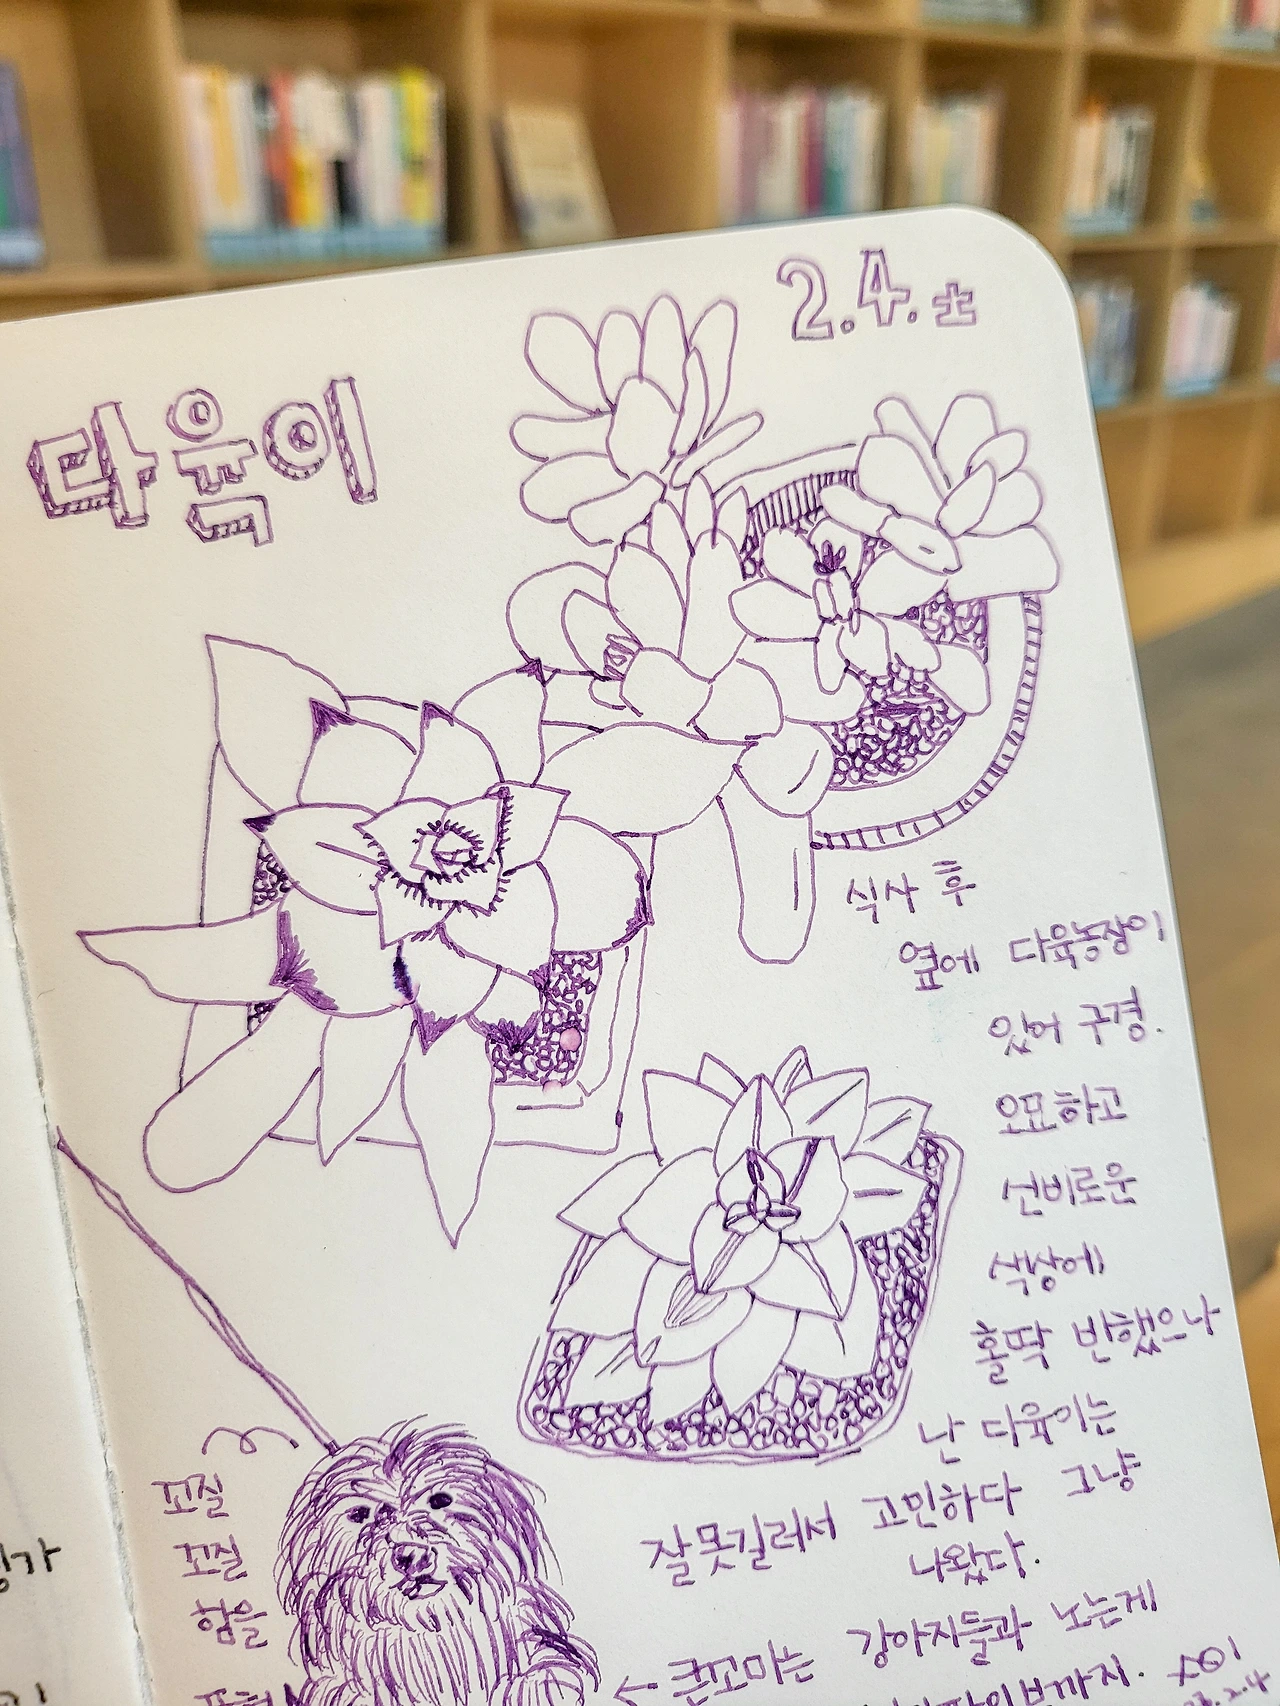 2.4.土
다육이
식사 후
옆에 다육농장이
있어 구경.
오묘하고
선비로운
색상에
홀딱 반했으나
난 다육이는
잘못길러서 고민하다 그냥
나왔다.
꼬질
꼬질
함을
표현
← 큰꼬마는 강아지들과 노는게